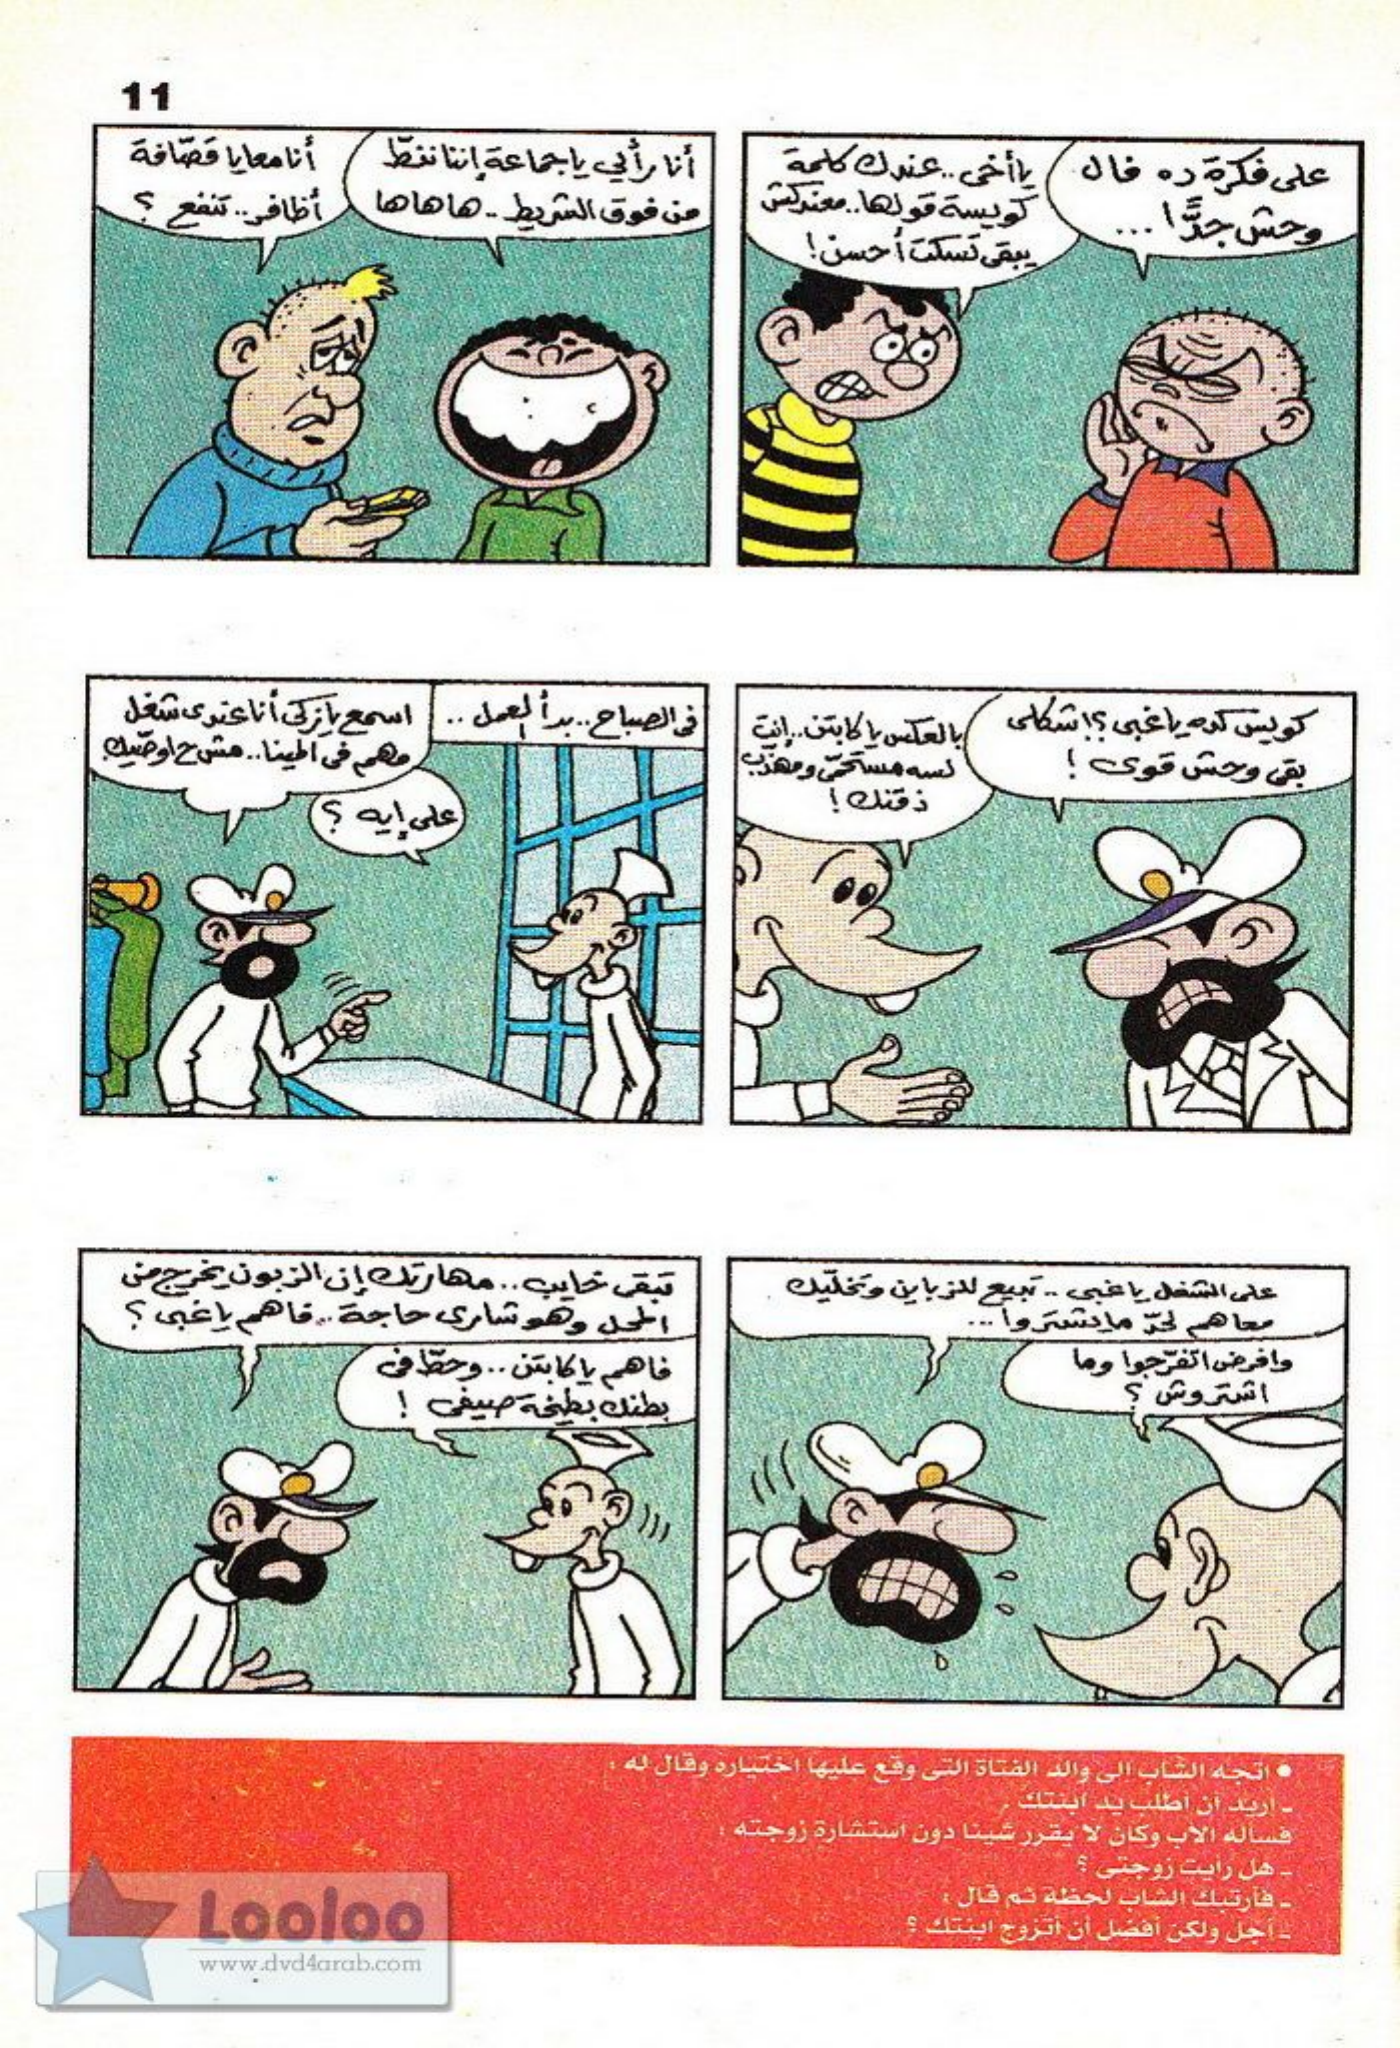 11
على فكرة ده فال
وحش جدًّا...
يا أخى.. عندك كلمة
كويسة قولها.. معندكش
يبقى تسكت أحسن!
أنا رأيي يا جماعة إننا ننطّ
من فوق الشريط.. هاهاها
أنا معايا قصّافة
أظافر.. تنفع ؟
كويس كده يا غبى ؟! شكلى
بقى وحش قوى !
بالعكس يا كابتن.. إنت
لسه مستحمّى ومهذّب
ذقنك !
فى الصباح.. بدأ العمل ..
اسمع يا زكى أنا عندى شغل
مهم فى المينا.. مش ح اوصّيك
على إيه ؟
على الشغل يا غبى .. تبيع للزباين وتخلّيك
معاهم لحدّ ما يشتروا ...
وافرض اتفرّجوا وما
اشتروش ؟
تبقى خايب.. مهارتك إن الزبون يخرج من
المحل وهو شارى حاجة.. فاهم يا غبى ؟
فاهم يا كابتن.. وحطّ فى
بطنك بطيخة صيفى !
• اتجه الشاب الى والد الفتاة التى وقع عليها اختياره وقال له :
ـ أريد أن أطلب يد ابنتك .
فسأله الأب وكان لا يقرر شيئا دون استشارة زوجته :
ـ هل رأيت زوجتى ؟
ـ فارتبك الشاب لحظة ثم قال :
ـ أجل ولكن أفضل أن أتزوج ابنتك ؟
Looloo
www.dvd4arab.com